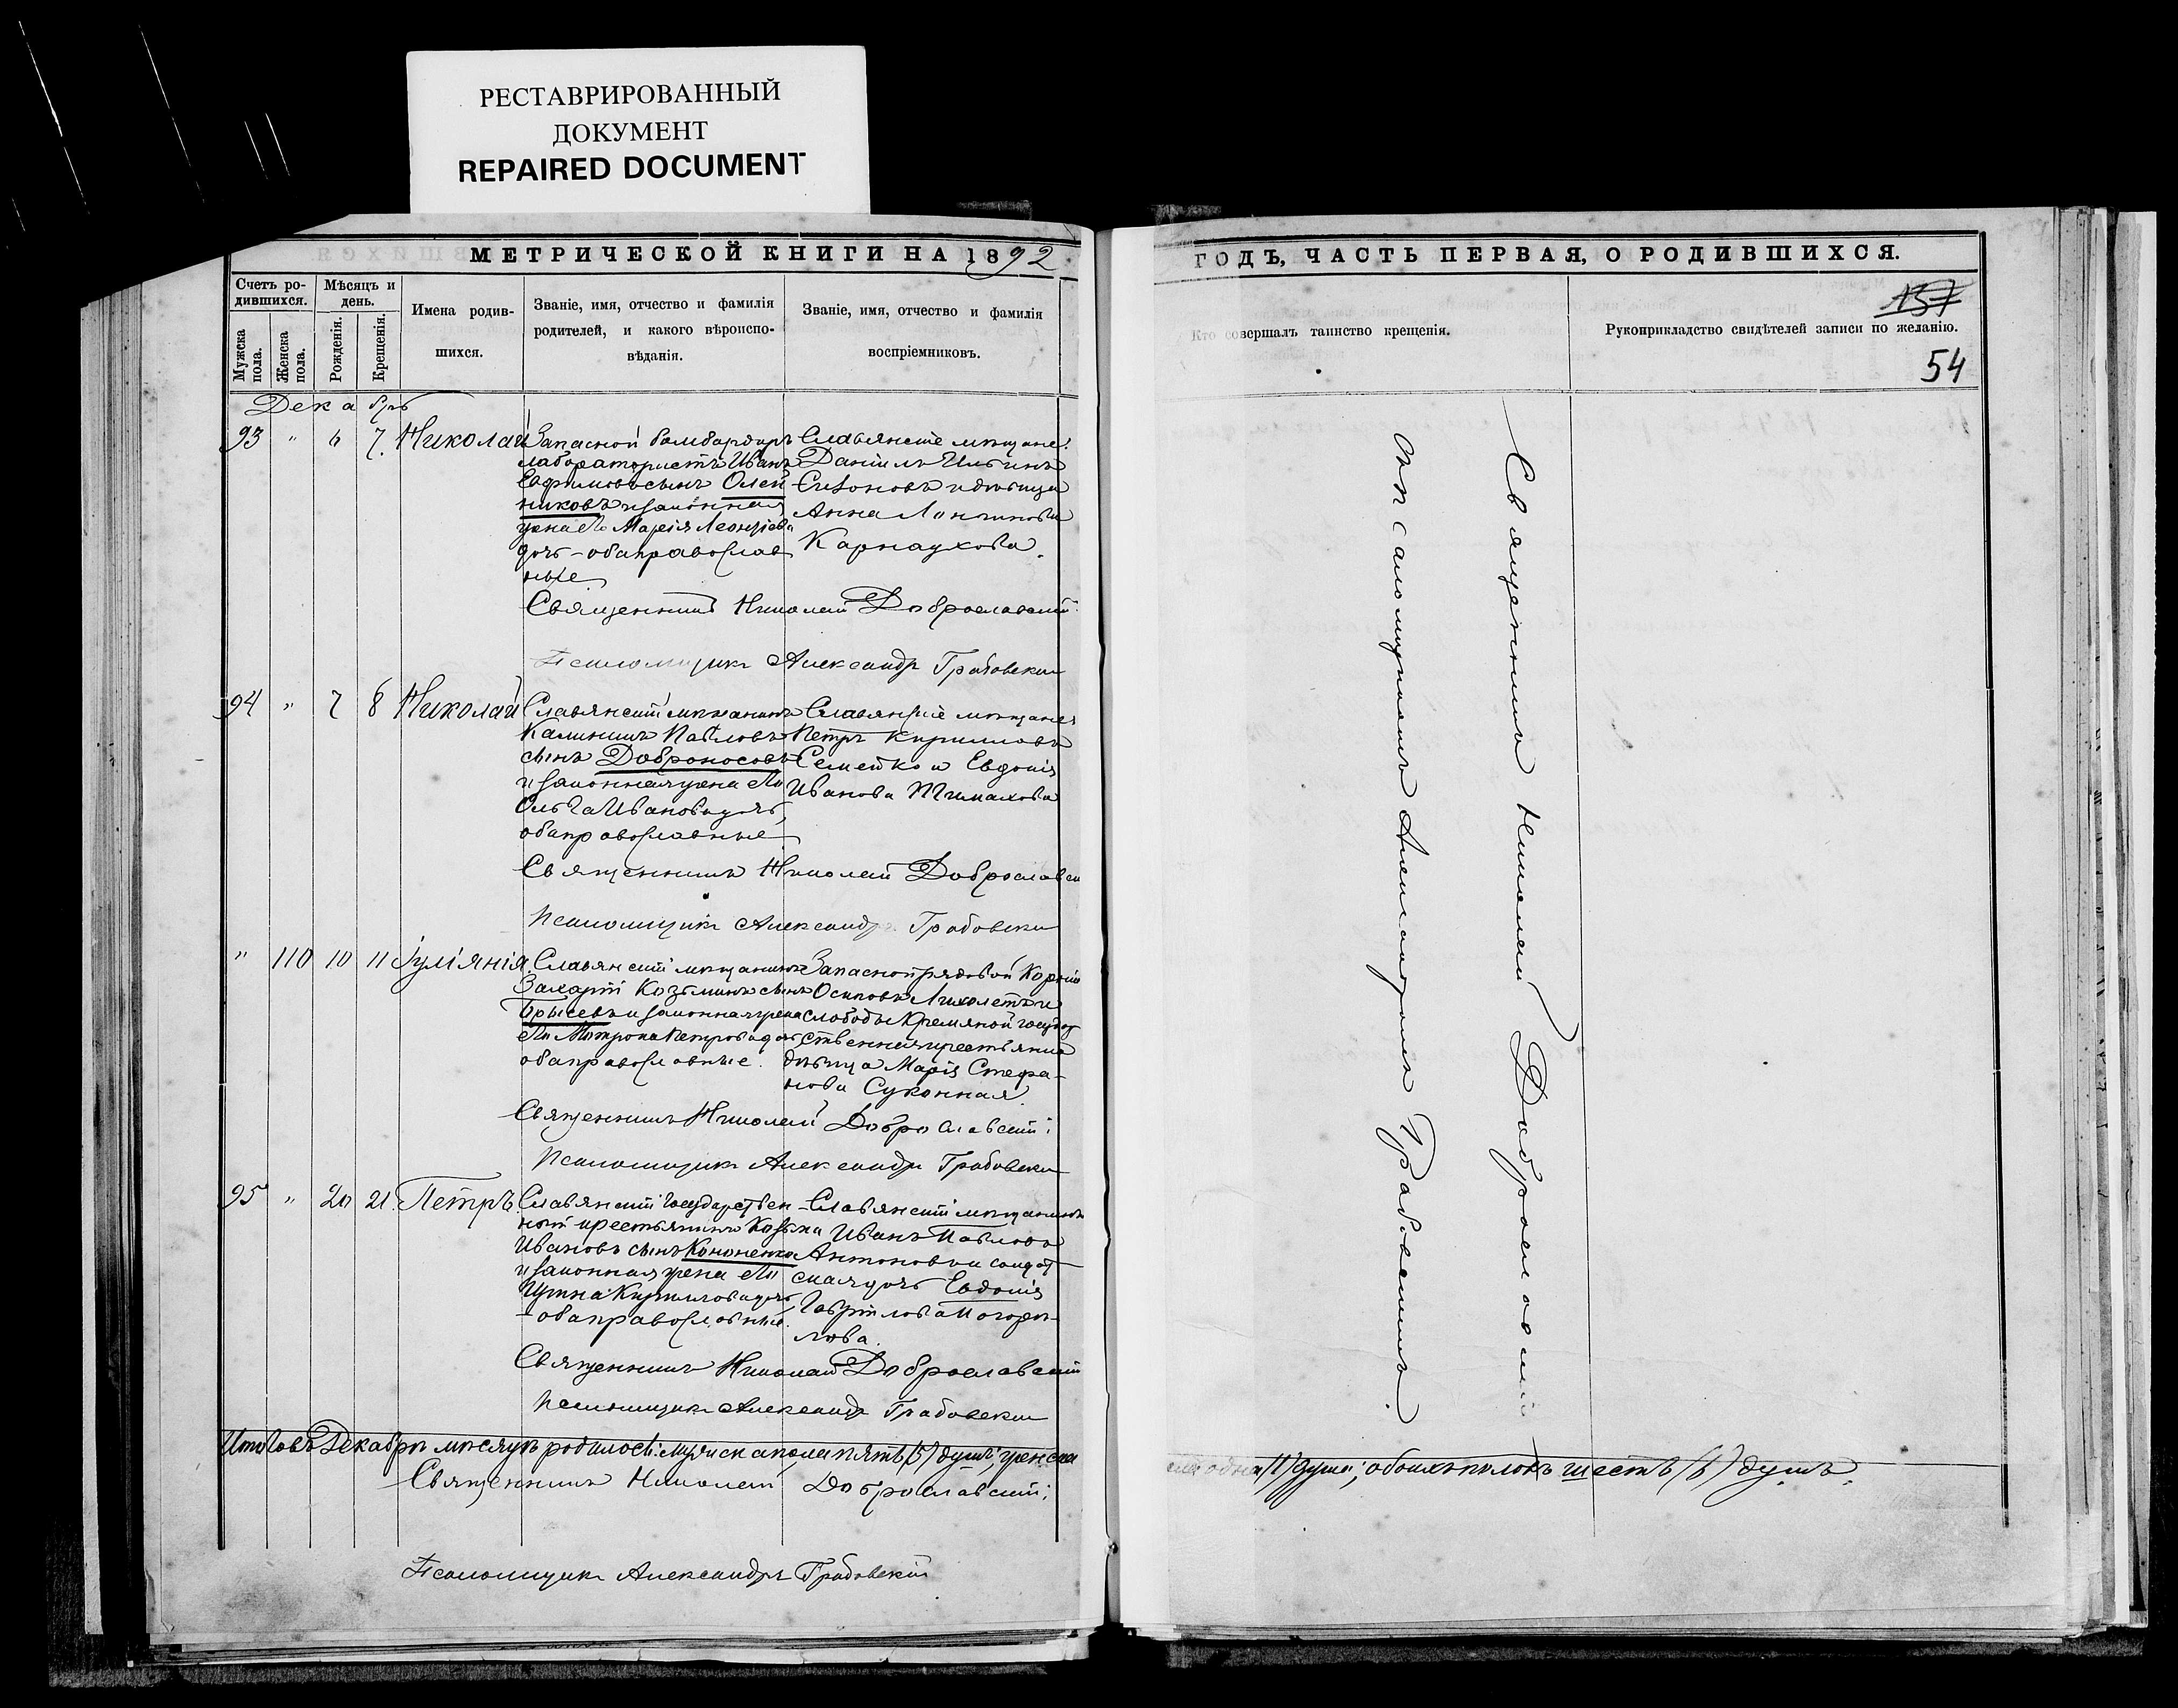 РЕСТАВРИРОВАННЫЙ
ДОКУМЕНТ
REPAIRED DOCUMENT
МЕТРИЧЕСКОЙ КНИГИ НА 1892
Счетъ ро-
дившихся.
Мужска
пола.
Женска
пола.
Мѣсяцъ и
день.
Рожденія.
Крещенія.
Имена родив-
шихся.
Званіе, имя, отчество и фамилія
родителей, и какого вѣроиспо-
вѣданія.
Званіе, имя, отчество и фамилія
воспріемниковъ.
Декабрь
93 " 6 7. Николай
Запасной бомбардиръ
лаборатористъ Иванъ
Ефимовъ сынъ Олей
никовъ и законная
жена его Марія Леонтіева
дочь - оба православ
ные
Славянскіе мѣщане:
Даніилъ Ильинъ
и дѣвица
Анна Логинова
Карнаухова.
Священникъ Николай Доброславскій
Псаломщикъ Александръ Грабовскій
94 " 7 8 Николай
Славянскій мѣщанинъ
Калинникъ Павловъ
сынъ Доброносовъ
и законная жена его
Ольга Иванова дочь,
оба православные
Славянскіе мѣщане
Петръ Кирилловъ
Семейко и Евдокія
Иванова
Священникъ Николай Доброславск
Псаломщикъ Александръ Грабовскій
" 110 10 11 Іуліанія.
Славянскій мѣщанинъ
Захарій Козьминъ сынъ
Брысевъ и законная жена
его Матрона Петрова дочь
оба православные.
Запасной рядовой Корній
Осиповъ Лихолетъ и
слободы Кременной государ
ственная крестьянка
дѣвица Марія Стефа-
нова Суконная.
Священникъ Николай Доброславскій
Псаломщикъ Александръ Грабовскій
95 " 20 21. Петръ.
Славянскій государствен-
ный крестьянинъ Козьма
Ивановъ сынъ Кононенко
и законная жена его
Кириллова дочь,
- оба православные.
Славянскій мѣщанинъ
Иванъ Павловъ
Антоновъ и солдат
ская дочь Евдокія
Гавріилова
Священникъ Николай Доброславскій
Псаломщикъ Александръ Грабовскій
Итого въ Декабрѣ мѣсяцѣ родилось: мужска пола пять (5) душъ, женска
Священникъ Николай Доброславскій;
Псаломщикъ Александръ Грабовскій
ГОДЪ, ЧАСТЬ ПЕРВАЯ, О РОДИВШИХСЯ.
157
Кто совершалъ таинство крещенія.
Рукоприкладство свидѣтелей записи по желанію.
54
Священникъ Николай Доброславскій
псаломщикомъ Александромъ Грабовскимъ.
одна (1) душа; обоихъ половъ шесть (6) душъ.